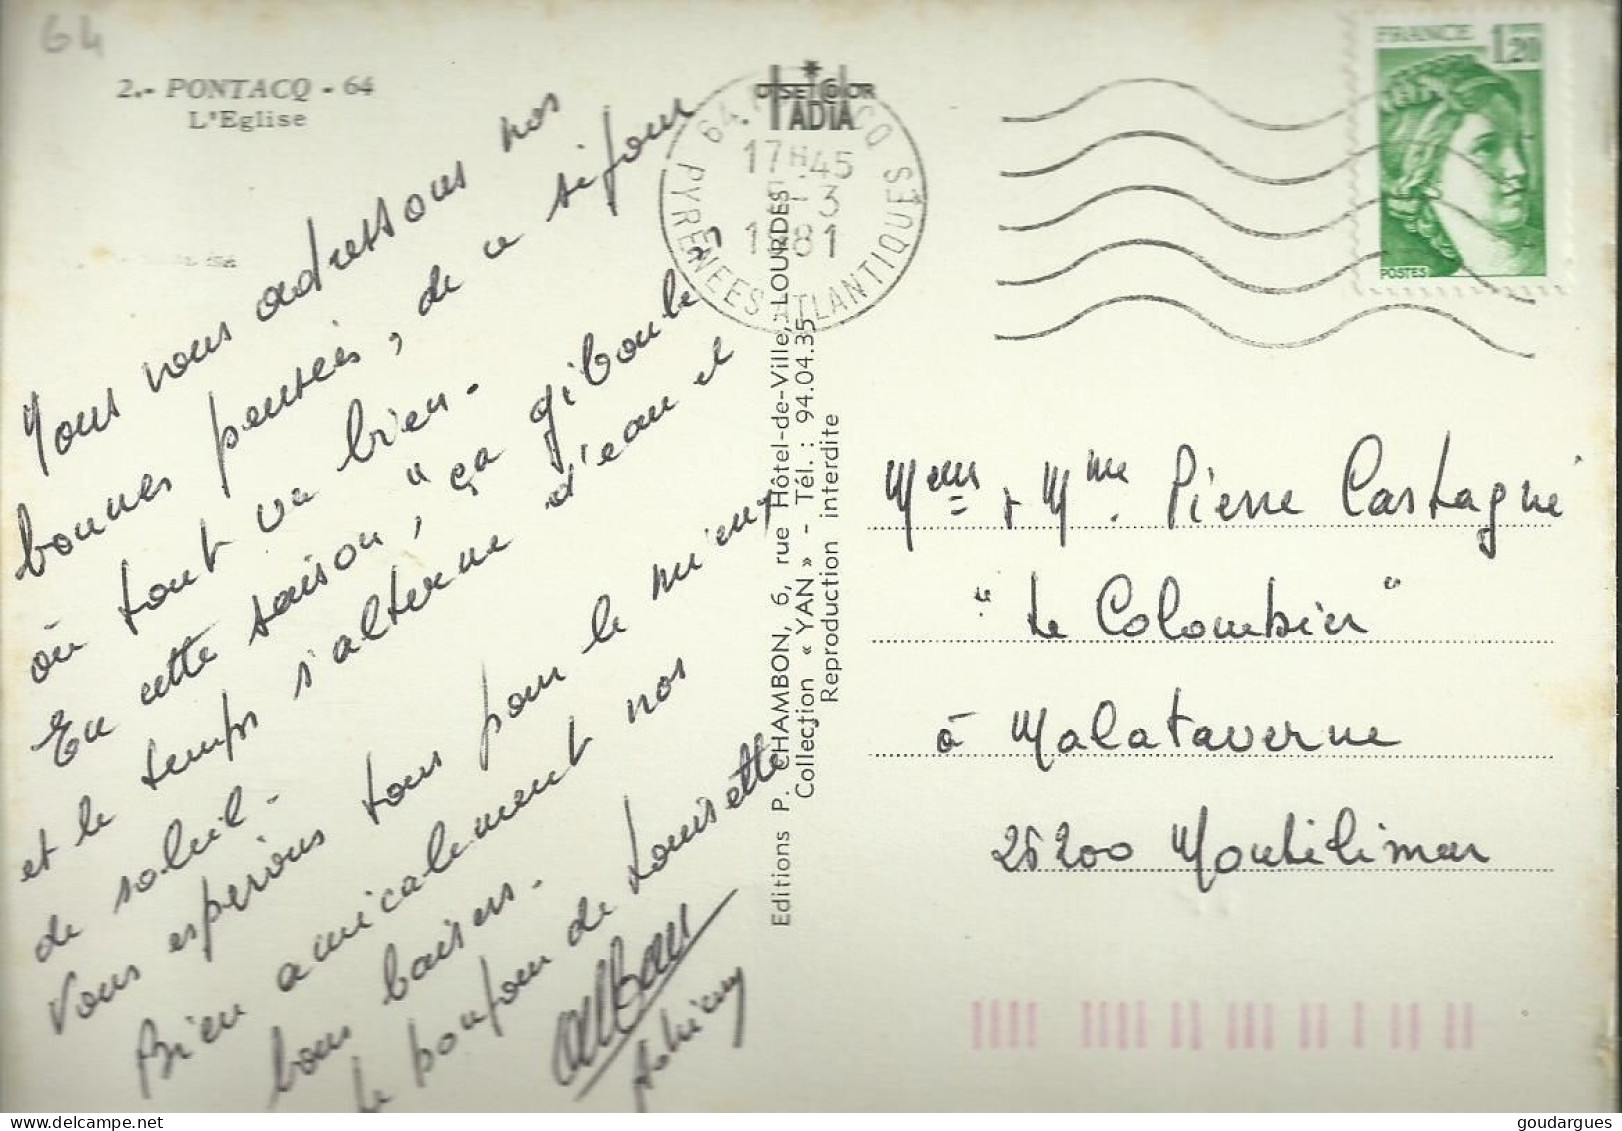 64
2.- PONTACQ - 64
L'Eglise
Nous vous adressons nos
bonnes pensées, de ce séjour
où tout va bien.
En cette saison, "ça giboule"
et le temps s'alterne d'eau et
de soleil.
Vous espérons tous pour le mieux
Bien amicalement nos
bons baisers.
le bonjour de Louisette
OFFSET COLOR
IADIA
64. PONTACQ
17H45
-3
1981
PYRENEES ATLANTIQUES
Editions P. CHAMBON, 6, rue Hôtel-de-Ville, LOURDES
Collection « YAN » - Tél. : 94.04.35
Reproduction interdite
FRANCE 1,20
POSTES
Meur & Mme Pierre Castagné
"Le Colombier"
à Malataverne
26200 Montélimar
goudargues@delcampe.net